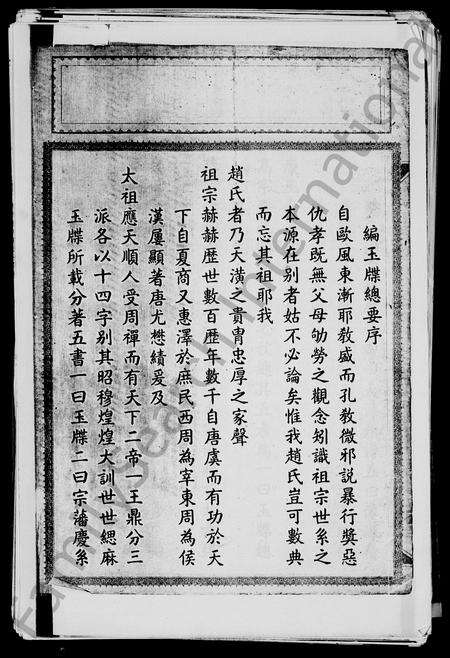 編玉牒總要序
自歐風東漸耶教盛而孔教微邪說暴行獎惡
仇孝既無父母劬勞之觀念矧識祖宗世系之
本源在別者姑不必論矣惟我趙氏豈可數典
而忘其祖耶我
趙氏者乃天潢之貴冑忠厚之家聲
祖宗赫赫歷世數百歷年數千自唐虞而有功於天
下自夏商又惠澤於庶民西周為宰東周為侯
漢屢顯著唐尤懋績爰及
太祖應天順人受周禪而有天下二帝一王鼎分三
派各以十四字別其昭穆煌煌大訓世世緦麻
玉牒所載分著五書一曰玉牒二曰宗藩慶系
FamilySearch International